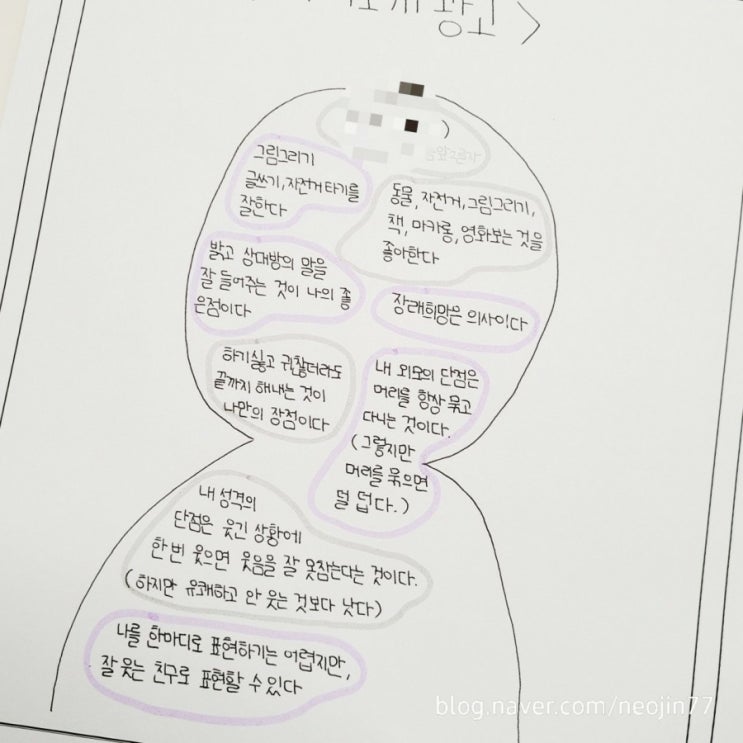 광고 >
그림그리기
글쓰기, 자전거 타기를
잘한다
동물, 자전거, 그림그리기,
책, 마카롱, 영화보는 것을
좋아한다
밝고 상대방의 말을
잘 들어주는 것이 나의 좋
은점이다
장래희망은 의사이다
하기싫고 귀찮더라도
끝까지 해내는 것이
나만의 장점이다
내 외모의 단점은
머리를 항상 묶고
다니는 것이다.
(그렇지만
머리를 묶으면
덜 덥다.)
내 성격의
단점은 웃긴 상황에
한번 웃으면 웃음을 잘 못참는다는 것이다.
(하지만 유쾌하고 안 웃는 것보다 낫다)
나를 한마디로 표현하기는 어렵지만,
잘 웃는 친구로 표현할 수 있다
blog.naver.com/neojin77